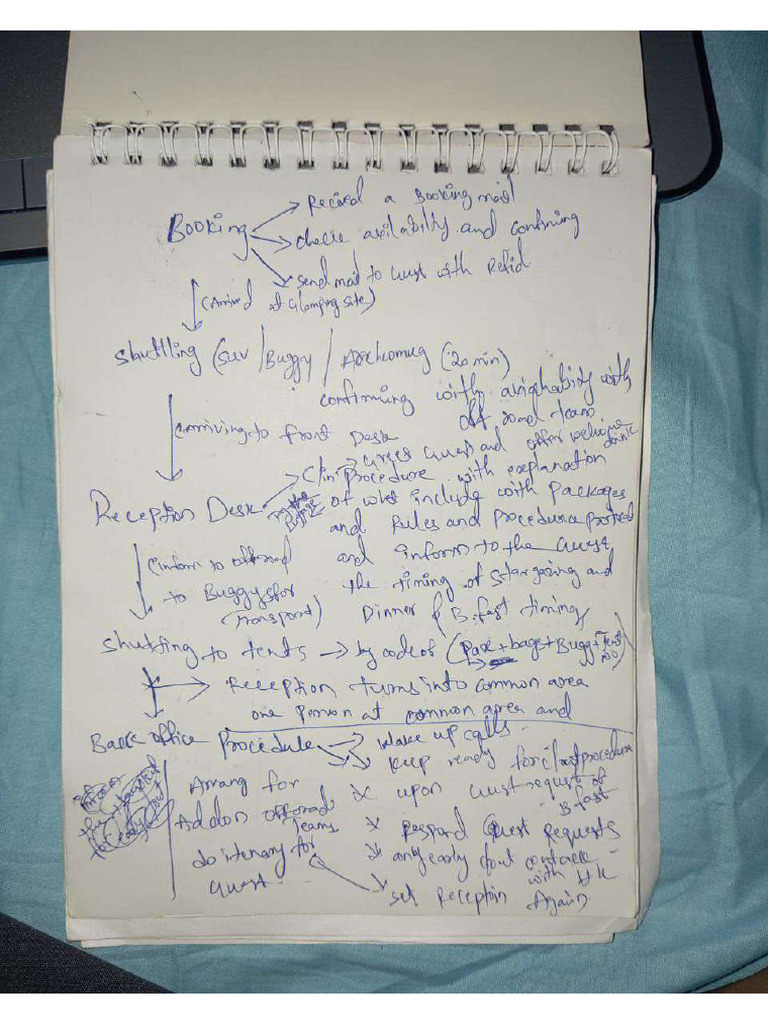 Booking → Recived a Booking mail
→ check availability and confirming
→ send mail to Guest with Refid
(Arrived at Glamping site)
Shuttling (SUV / Buggy / (20 min)
confirming with availability with
off road team
arriving to front Desk
→ Greet Guest and offer welcome drink
Reception Desk → C/in Procedure with explanation
of what include with Packages
and Rules and Procedura
(inform to offroad and inform to the Guest
to Buggys for the timing of Stargazing and
Transport) Dinner & B.fast timing
Shutting to tents → by code of (Pax + bags + Bugg + Tent no)
→ Reception turns into common area
one person at common area and
Back office Procedule → Wake up calls
→ Keep ready for c/out procedura
Arrang for x upon Guest request of B.fast
Addon offroad Teams x Respond Guest Requests
do itenary for x any early c/out contack with HK
Guest x set Reception Again